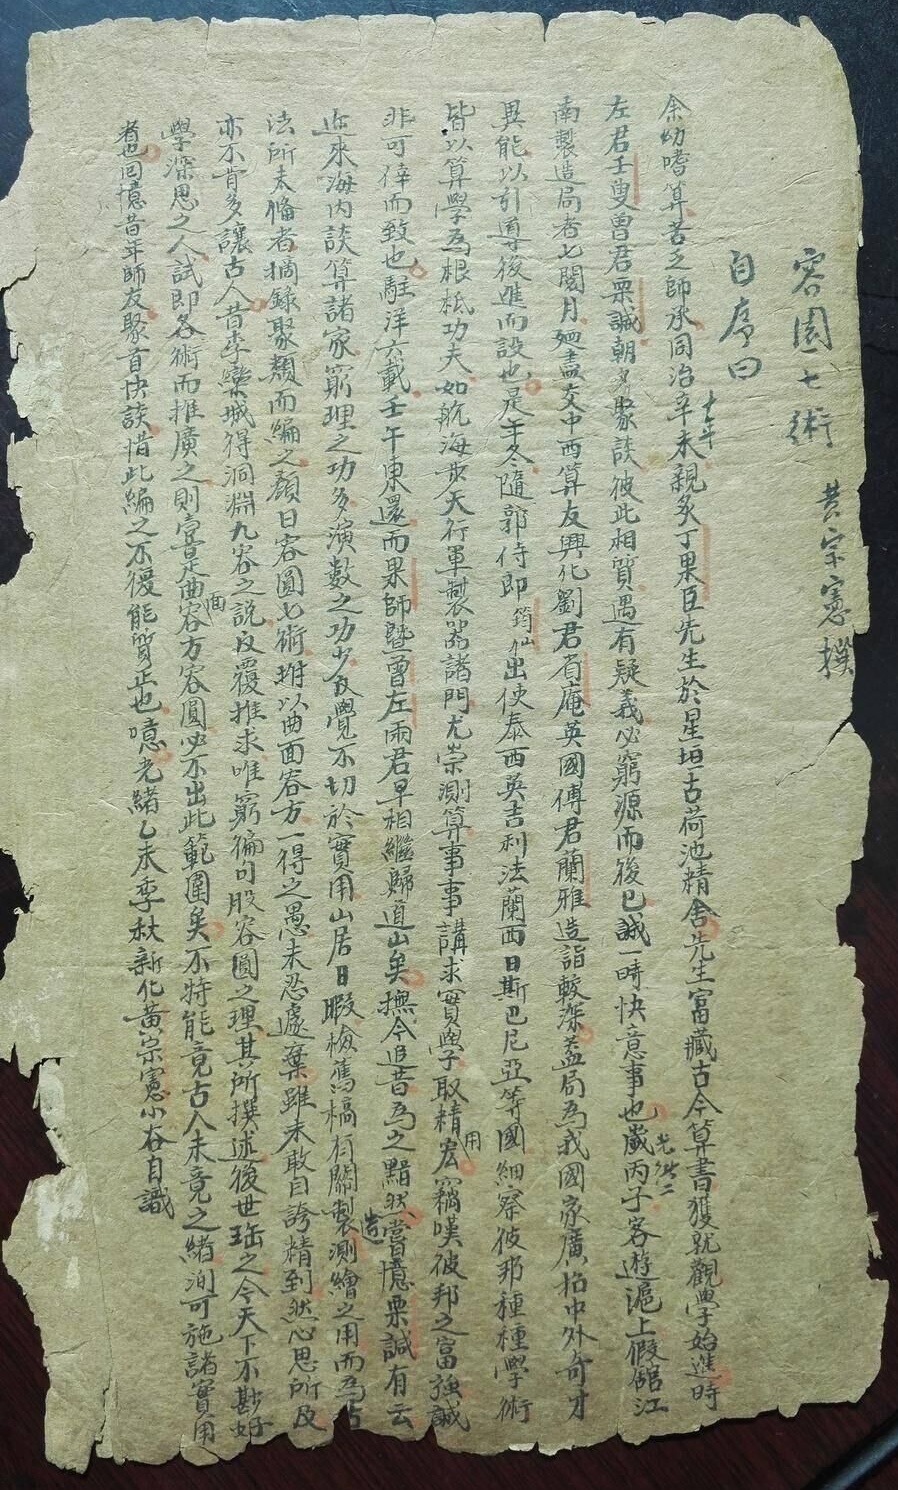 容圓七術　黃宗憲撰
自序曰
余幼嗜算苦乏師承同治辛未十年親炙丁果臣先生於星垣古荷池精舍先生富藏古今算書獲就觀學始進時
左君壬叟曾君栗諴朝夕聚談彼此相質遇有疑義必窮源而後已誠一時快意事也歲丙子光緒二客遊滬上假館江
南製造局者七閱月廼盡交中西算友興化劉君省庵英國傅君蘭雅造詣較深蓋局為我國家廣招中外奇才
異能以引導後進而設也是年冬隨郭侍郎筠仙出使泰西英吉利法蘭西日斯巴尼亞等國細察彼邦種種學術
皆以算學為根柢功夫如航海步天行軍製器諸門尤崇測算事事講求實學取精用宏竊嘆彼邦之富強誠
非可倖而致也駐洋六載壬午東還而果師暨曾左兩君早相繼歸道山矣撫今追昔為之黯然嘗憶栗諴有云
近來海內談算諸家窮理之功多演數之功少覺不切於實用山居日暇檢舊稿有關製造測繪之用而為古
法所未備者摘錄聚類而編之顏曰容圓七術坿以曲面容方一得之愚未忍遽棄雖未敢自誇精到然心思所及
亦不肯多讓古人昔李欒城得洞淵九容之說反覆推求唯窮徧句股容圓之理其所撰述後世珤之今天下不尠好
學深思之人試即各術而推廣之則曲面容方容圓必不出此範圍矣不特能竟古人未竟之緒洵可施諸實用
者也回憶昔年師友聚首快談惜此編之不復能質正也噫光緒乙未季秋新化黃宗憲小谷自識